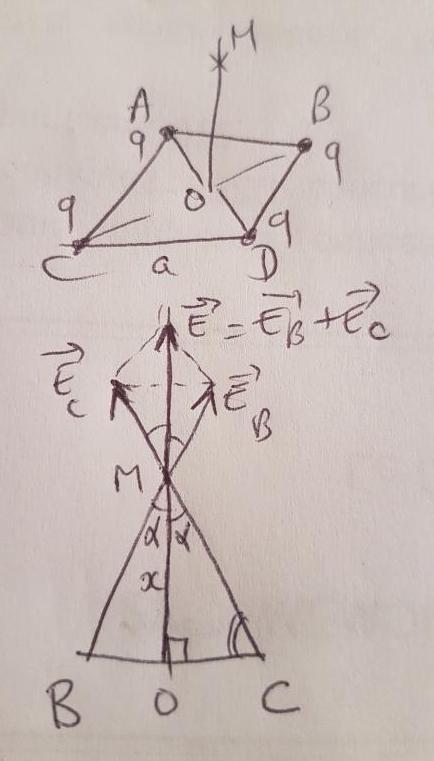 M
A B
q q
q O q
C a D
E⃗ = E⃗_B + E⃗_C
E⃗_C E⃗_B
M
α α
x
B O C